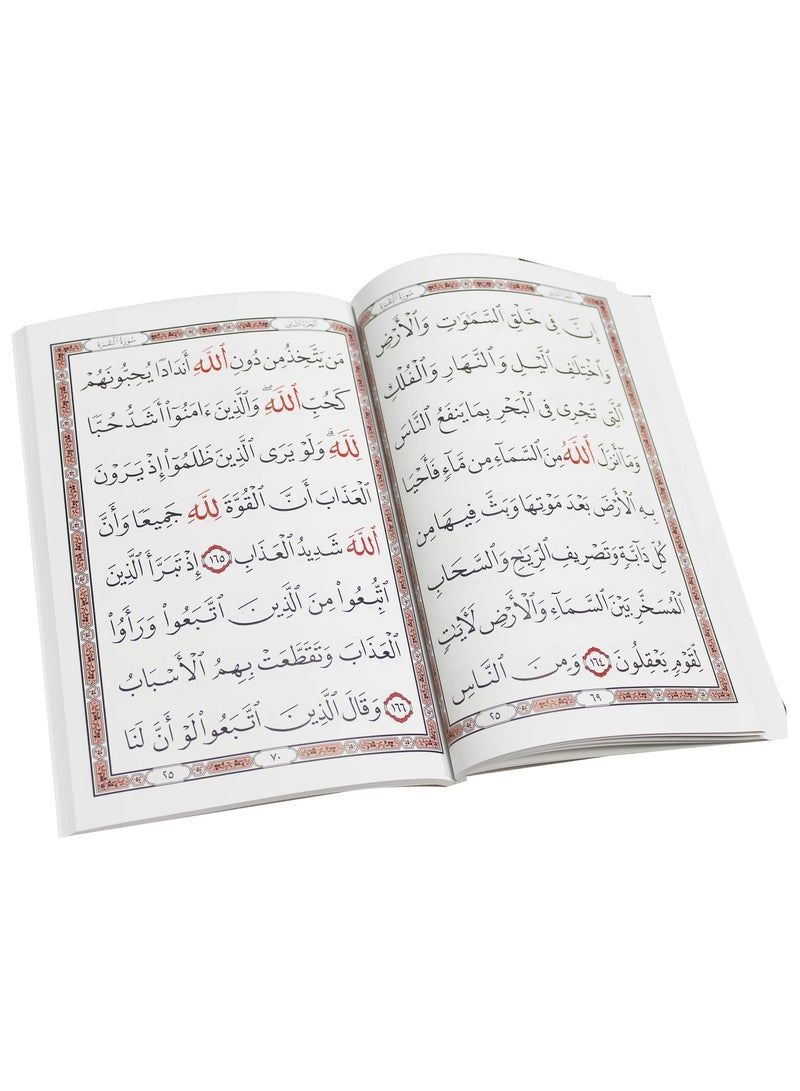 سورة البقرة
الجزء الثاني
إِنَّ فِى خَلْقِ ٱلسَّمَٰوَٰتِ وَٱلْأَرْضِ
وَٱخْتِلَٰفِ ٱلَّيْلِ وَٱلنَّهَارِ وَٱلْفُلْكِ
ٱلَّتِى تَجْرِى فِى ٱلْبَحْرِ بِمَا يَنفَعُ ٱلنَّاسَ
وَمَآ أَنزَلَ ٱللَّهُ مِنَ ٱلسَّمَآءِ مِن مَّآءٍ فَأَحْيَا
بِهِ ٱلْأَرْضَ بَعْدَ مَوْتِهَا وَبَثَّ فِيهَا مِن
كُلِّ دَآبَّةٍ وَتَصْرِيفِ ٱلرِّيَٰحِ وَٱلسَّحَابِ
ٱلْمُسَخَّرِ بَيْنَ ٱلسَّمَآءِ وَٱلْأَرْضِ لَءَايَٰتٍ
لِّقَوْمٍ يَعْقِلُونَ ١٦٤ وَمِنَ ٱلنَّاسِ
٦٩
٢٥
سورة البقرة
الجزء الثاني
مَن يَتَّخِذُ مِن دُونِ ٱللَّهِ أَندَادًا يُحِبُّونَهُمْ
كَحُبِّ ٱللَّهِ ۖ وَٱلَّذِينَ ءَامَنُوٓا۟ أَشَدُّ حُبًّا
لِّلَّهِ ۗ وَلَوْ يَرَى ٱلَّذِينَ ظَلَمُوٓا۟ إِذْ يَرَوْنَ
ٱلْعَذَابَ أَنَّ ٱلْقُوَّةَ لِلَّهِ جَمِيعًا وَأَنَّ
ٱللَّهَ شَدِيدُ ٱلْعَذَابِ ١٦٥ إِذْ تَبَرَّأَ ٱلَّذِينَ
ٱتُّبِعُوا۟ مِنَ ٱلَّذِينَ ٱتَّبَعُوا۟ وَرَأَوُا۟
ٱلْعَذَابَ وَتَقَطَّعَتْ بِهِمُ ٱلْأَسْبَابُ
١٦٦ وَقَالَ ٱلَّذِينَ ٱتَّبَعُوا۟ لَوْ أَنَّ لَنَا
٧٠
٢٥